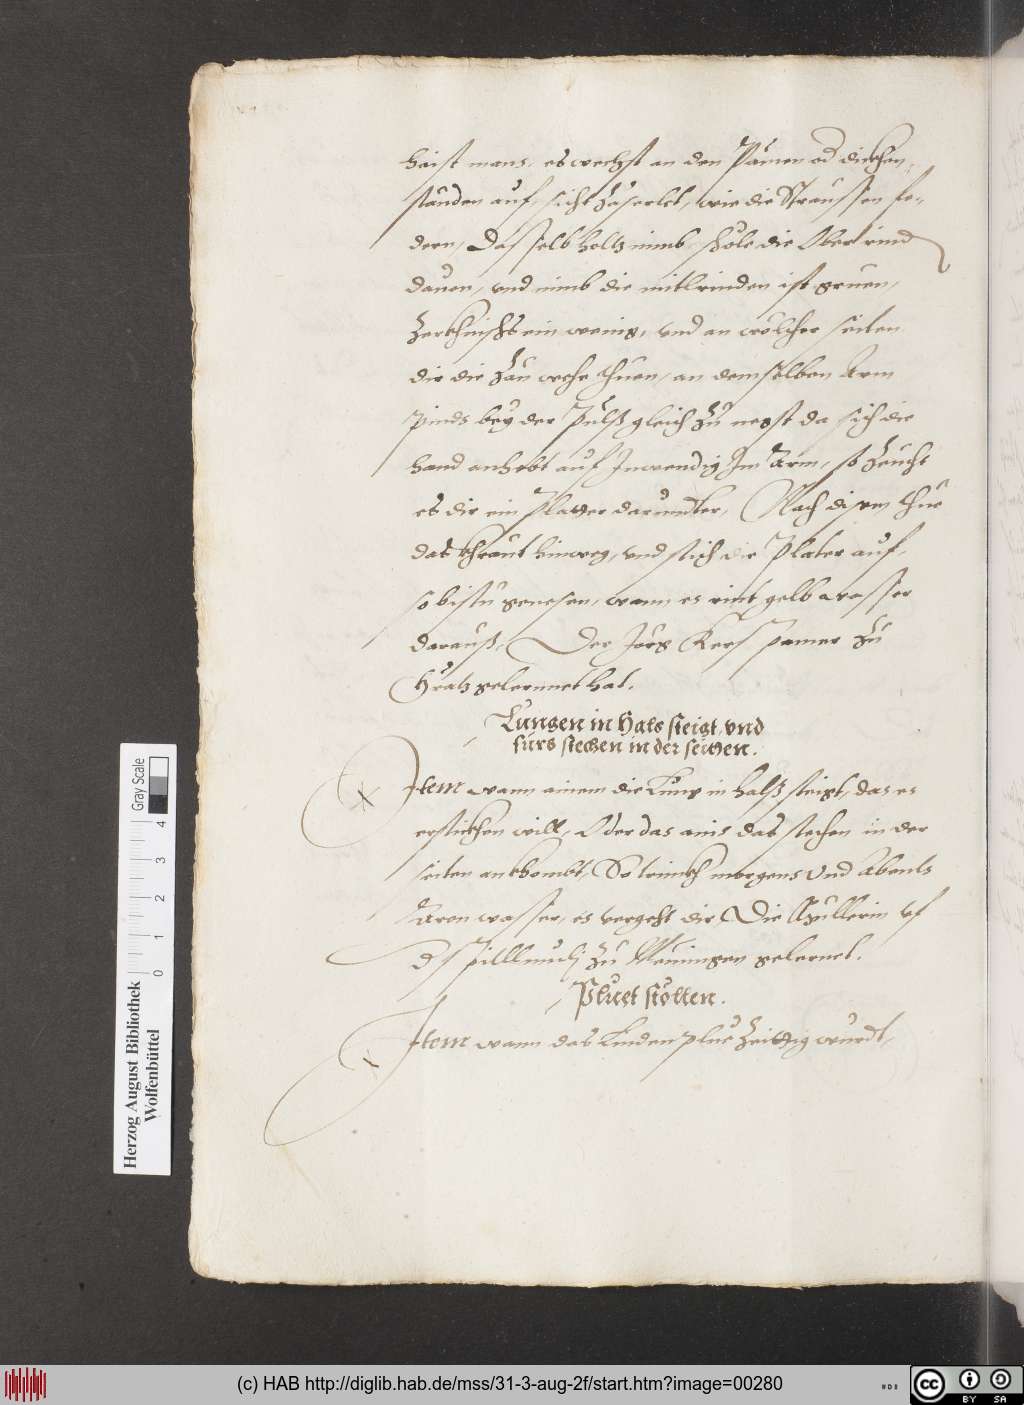 haist mans, es wechst an den Pämen od dickhen
stauden auf, sicht Zäserlet, wie die Straussen fe-
dern, Dasselb holtz nimb, schöle die Ober rind
dauon, vnd nimb die mitlrinden ist gruen,
Zerkhnischs ein wenig, vnd an wölcher seiten
dir die Zän wehe thuen, an demselben Arm
pinds bey der Pulß gleich Zu negst da sich die
hand anhebt auf Inwendig Im Arm, so Zeucht
es dir ein plater darundter, Nach disem thue
das khraut hinweg, vnd stich die Plater auf,
so bistu genesen, wann es rint gelb wasser
darauß, Der Jörg pamer Zu
Gratz gelernnet hat.
Lungen in Hals steigt, vnd
fürs stechen in der seitten.
Item wann ainem die Lung in halß steigt, das es
erstickhen will, Oder das ains das stechen in der
seiten ankhombt, So trinckh morgens Vnd Abents
Aron wasser, es vergeht dir, Die Müllerin vf
d Zu gelernet.
Pluet stöllen.
Item wann das Plue Zeittig wurdt,
Herzog August Bibliothek
Wolfenbüttel
0 1 2 3 4
Gray Scale
(c) HAB http://diglib.hab.de/mss/31-3-aug-2f/start.htm?image=00280
cc BY SA